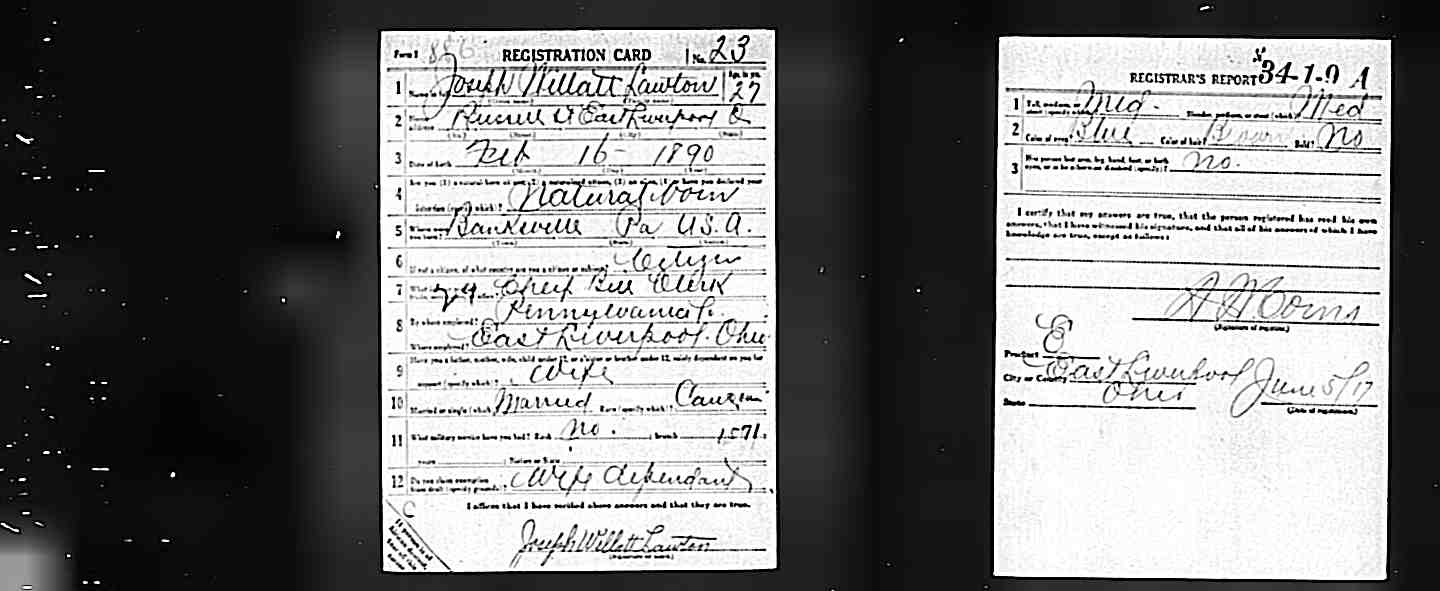 Form 1 886 REGISTRATION CARD No. 23
1 Joseph Willatt Lawton Age, in yrs. 27
2 Russell St East Liverpool O
3 Date of birth Feb 16 - 1890
(Month) (Day) (Year)
4 Are you (1) a natural born citizen, (2) a naturalized citizen, (3) an alien, (4) or have you declared your
intention (specify which)? Natural born
5 Where were you born? Banksville Pa U.S.A.
(Town) (State) (Nation)
6 If not a citizen, of what country are you a citizen or subject? Citizen
7 Chief Bill Clerk
8 By whom employed? Pennylvania
Where employed? East Liverpool. Ohio
9 Have you a father, mother, wife, child under 12, or a sister or brother under 12, solely dependent on you for
support (specify which)? Wife
10 Married or single (which)? Married Race (specify which)? Caucasian
11 What military service have you had? Rank no. ; branch 1571 ;
years ; Nation or State
12 Do you claim exemption
from draft (specify grounds)? Wife dependant
I affirm that I have verified above answers and that they are true.
C
Joseph Willatt Lawton
(Signature or mark)
REGISTRAR'S REPORT 34-1-9 A
1 Tall, medium, or short (specify which)? Med. Slender, medium, or stout (which)? Med
2 Color of eyes? Blue Color of hair? Brown Bald? No
3 Has person lost arm, leg, hand, foot, or both
eyes, or is he otherwise disabled (specify)? no.
I certify that my answers are true, that the person registered has read his own
answers, that I have witnessed his signature, and that all of his answers of which I have
knowledge are true, except as follows:
(Signature of registrar)
Precinct E
City or County East Liverpool June 5/17
State Ohio (Date of registration)